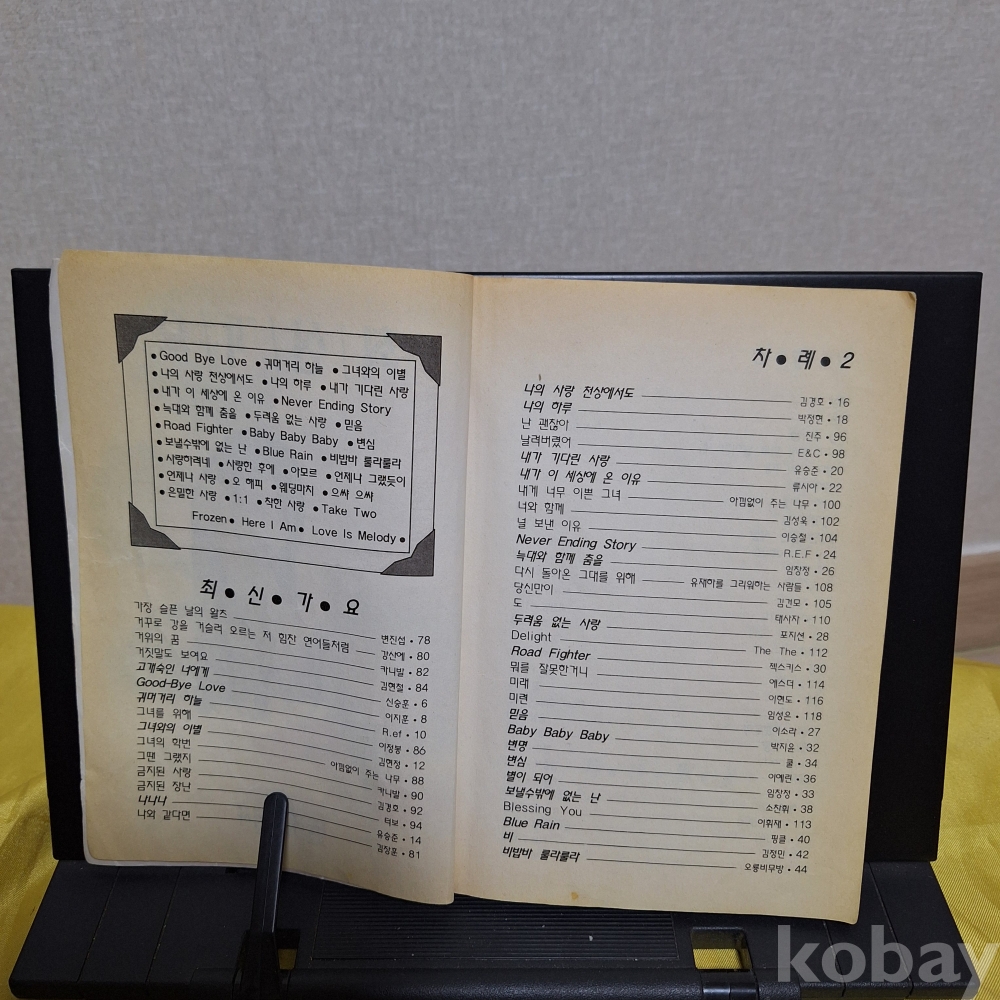 ● Good Bye Love ● 귀머거리 하늘 ● 그녀와의 이별
● 나의 사랑 천상에서도 ● 나의 하루 ● 내가 기다린 사랑
● 내가 이 세상에 온 이유 ● Never Ending Story
● 늑대와 함께 춤을 ● 두려움 없는 사랑 ● 믿음
● Road Fighter ● Baby Baby Baby ● 변심
● 보낼수밖에 없는 난 ● Blue Rain ● 비밥바 룰라룰라
● 사랑하려네 ● 사랑한 후에 ● 아모르 ● 언제나 그랬듯이
● 언제나 사랑 ● 오 해피 ● 웨딩마치 ● 으싸 으싸
● 은밀한 사랑 ● 1:1 ● 착한 사랑 ● Take Two
Frozen ● Here I Am ● Love Is Melody ●
최 ● 신 ● 가 ● 요
가장 슬픈 날의 왈츠 변진섭 • 78
거꾸로 강을 거슬러 오르는 저 힘찬 연어들처럼 강산에 • 80
거위의 꿈 카니발 • 82
거짓말도 보여요 김현철 • 84
고개숙인 너에게 신승훈 • 6
Good-Bye Love 이지훈 • 8
귀머거리 하늘 R.ef • 10
그녀를 위해 이정봉 • 86
그녀와의 이별 김현정 • 12
그녀의 학번 아낌없이 주는 나무 • 88
그땐 그랬지 카니발 • 90
금지된 사랑 김경호 • 92
금지된 장난 터보 • 94
니니니 유승준 • 14
나와 같다면 김장훈 • 81
차 ● 례 ● 2
나의 사랑 천상에서도 김경호 • 16
나의 하루 박정현 • 18
난 괜찮아 진주 • 96
날려버렸어 E&C • 98
내가 기다린 사랑 유승준 • 20
내가 이 세상에 온 이유 류시아 • 22
내게 너무 이쁜 그녀 아낌없이 주는 나무 • 100
너와 함께 김성욱 • 102
널 보낸 이유 이승철 • 104
Never Ending Story R.E.F • 24
늑대와 함께 춤을 임창정 • 26
다시 돌아온 그대를 위해 유재하를 그리워하는 사람들 • 108
당신만이 김건모 • 105
도 태사자 • 110
두려움 없는 사랑 포지션 • 28
Delight The The • 112
Road Fighter 젝스키스 • 30
뭐를 잘못한거니 에스더 • 114
미래 이현도 • 116
미련 임성은 • 118
믿음 이소라 • 27
Baby Baby Baby 박지윤 • 32
변명 쿨 • 34
변심 이예린 • 36
별이 되어 임창정 • 33
보낼수밖에 없는 난 소찬휘 • 38
Blessing You 이휘재 • 113
Blue Rain 핑클 • 40
비 김정민 • 42
비밥바 룰라룰라 오룡비무방 • 44
kobay